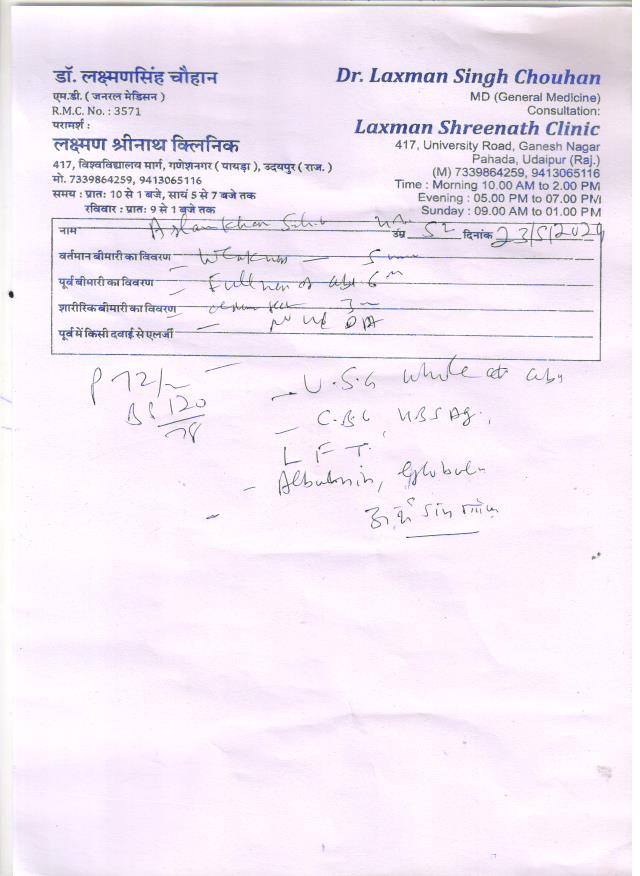 डॉ. लक्ष्मणसिंह चौहान
एम.डी. ( जनरल मेडिसन )
R.M.C. No. : 3571
परामर्श :
लक्ष्मण श्रीनाथ क्लिनिक
417, विश्वविद्यालय मार्ग, गणेशनगर ( पायड़ा ), उदयपुर ( राज. )
मो. 7339864259, 9413065116
समय : प्रातः 10 से 1 बजे, सायं 5 से 7 बजे तक
रविवार : प्रातः 9 से 1 बजे तक
Dr. Laxman Singh Chouhan
MD (General Medicine)
Consultation:
Laxman Shreenath Clinic
417, University Road, Ganesh Nagar
Pahada, Udaipur (Raj.)
(M) 7339864259, 9413065116
Time : Morning 10.00 AM to 2.00 PM
Evening : 05.00 PM to 07.00 PM
Sunday : 09.00 AM to 01.00 PM
नाम Aslamkhan उम्र 52 दिनांक 23/5/2024
वर्तमान बीमारी का विवरण - Weakness -
पूर्व बीमारी का विवरण - Fullness of abd 6
शारीरिक बीमारी का विवरण
पूर्व में किसी दवाई से एलर्जी
P 72/
BP 120/78
- U.S.G whole abd
- C.B.C HBSAg.
L F T.
- Albumin, Globulin